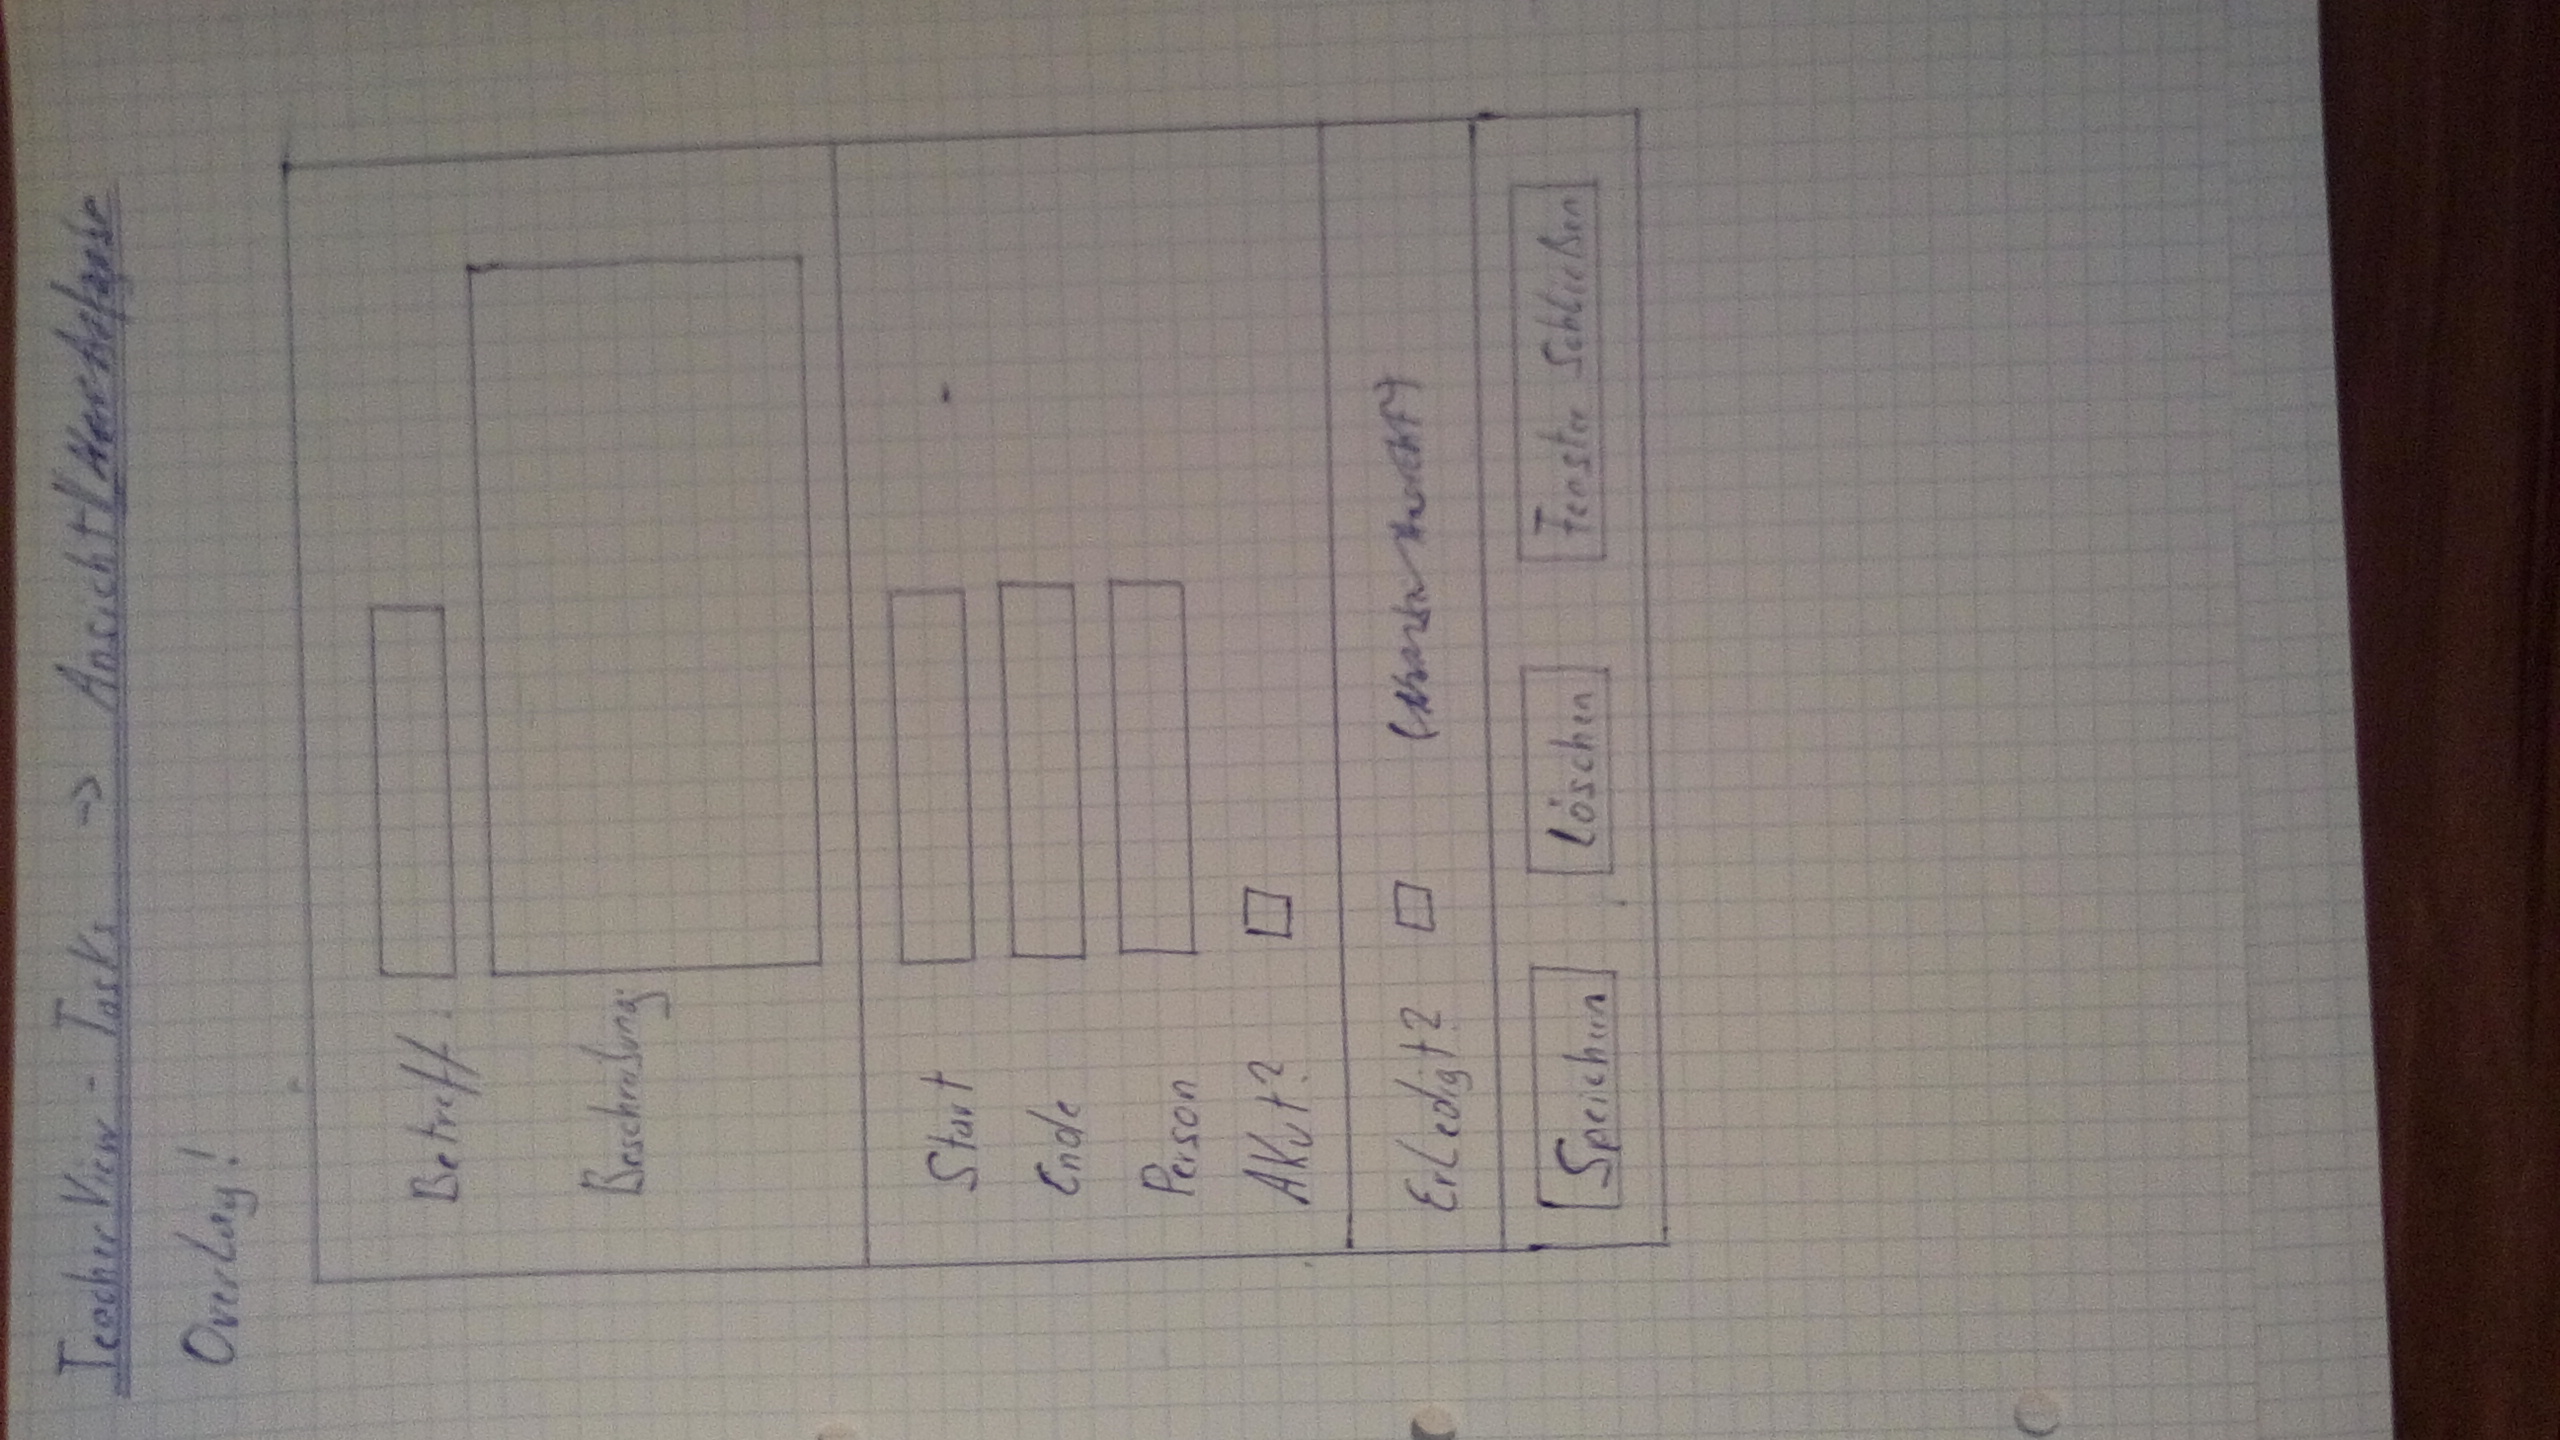 TeacherView - Tasks -> Ansicht
Overlay!
Betreff:
Beschreibung:
Start
Ende
Person
Akut?
Erledigt?
Speichern Löschen Fenster Schließen